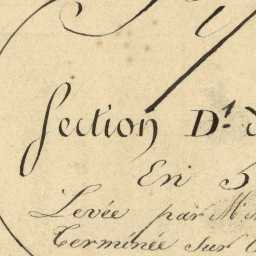 Section D.¹
En 5
Levée par M.
Terminée sur